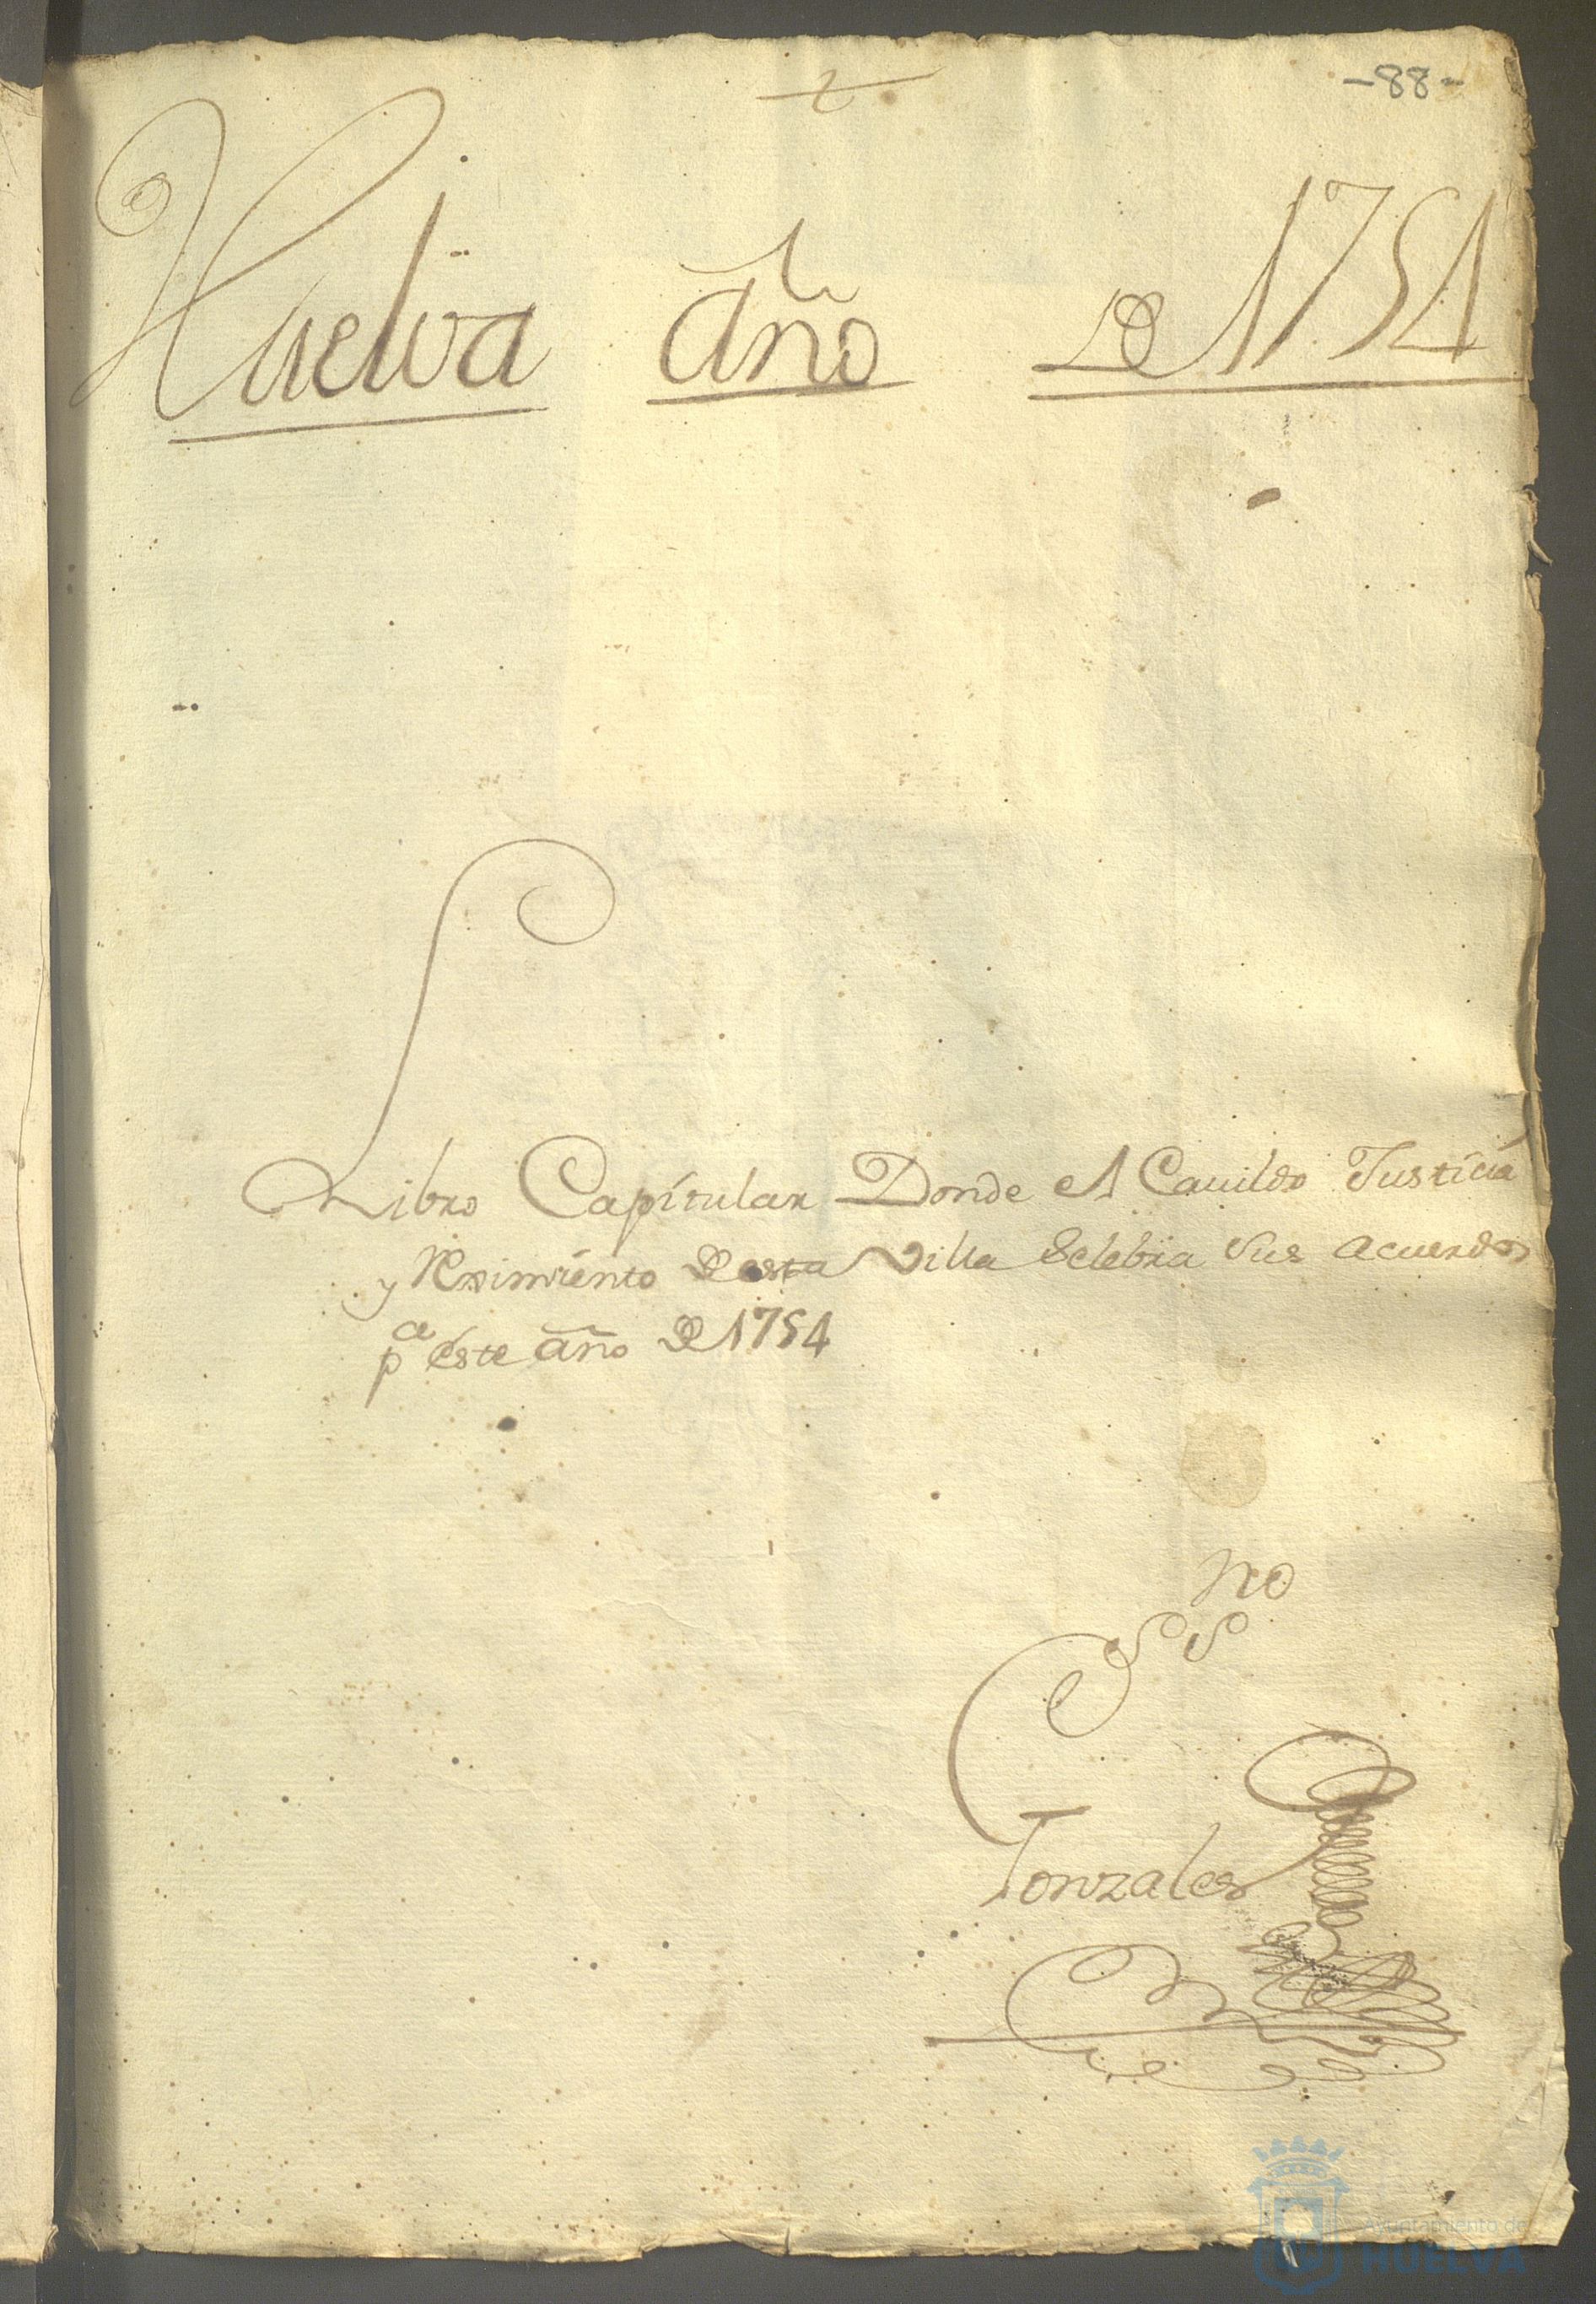 -88-
Huelva año de 1754
Libro Capitular Donde el Cauildo Justicia
y Reximiento de esta Villa Selebra Sus acuerdos
pa este año de 1754
no
Ess
Gonzales
Ayuntamiento de
HUELVA